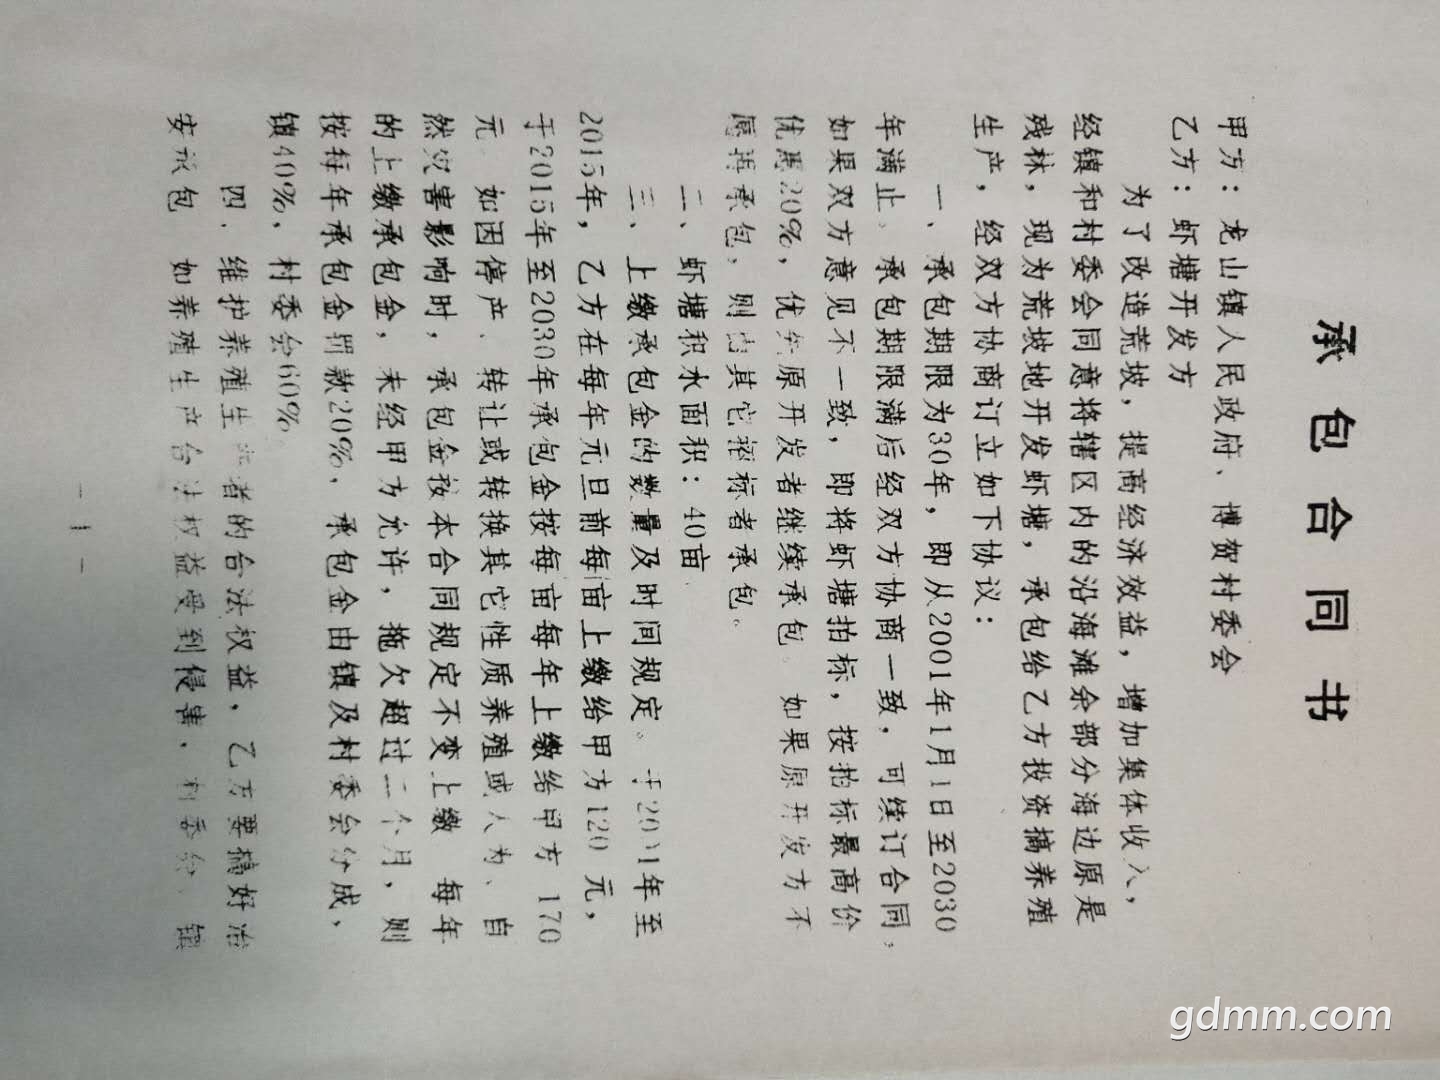 承包合同书
甲方：龙山镇人民政府、博贺村委会
乙方：虾塘开发方
为了改造荒坡，提高经济效益，增加集体收入，
经镇和村委会同意将辖区内的沿海滩余部分海边原是
残林，现为荒坡地开发虾塘，承包给乙方投资搞养殖
生产，经双方协商订立如下协议：
一、承包期限为30年，即从2001年1月1日至2030
年满止。承包期限满后经双方协商一致，可续订合同，
如果双方意见不一致，即将虾塘拍标，按拍标最高价
优惠20%，优先原开发者继续承包。如果原开发方不
愿再承包，则由其它招标者承包。
二、虾塘积水面积：40亩
三、上缴承包金的数量及时间规定。于2001年至
2015年，乙方在每年元旦前每亩上缴给甲方120元，
于2015年至2030年承包金按每亩每年上缴给甲方170
元 如因停产、转让或转换其它性质养殖或人为、自
然灾害影响时，承包金按本合同规定不变上缴 每年
的上缴承包金，未经甲方允许，拖欠超过二个月，则
按每年承包金罚款20%，承包金由镇及村委会分成，
镇40%，村委会60%
四．维护养殖生产者的合法权益，乙方要搞好治
安承包 如养殖生产合法权益受到侵害，村委会、镇
- 1 -
gdmm.com